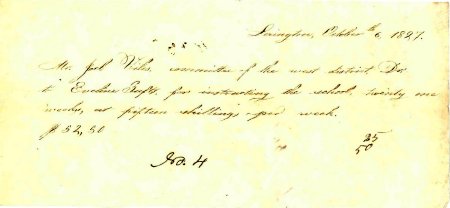 Lexington, October 6th, 1827.
Mr. Joel Viles, committee of the west district, Dr.
to Eveline Taft for instructing the school, twenty one
weeks, at fifteen shillings per week.
$ 52,50
25
50
No. 4